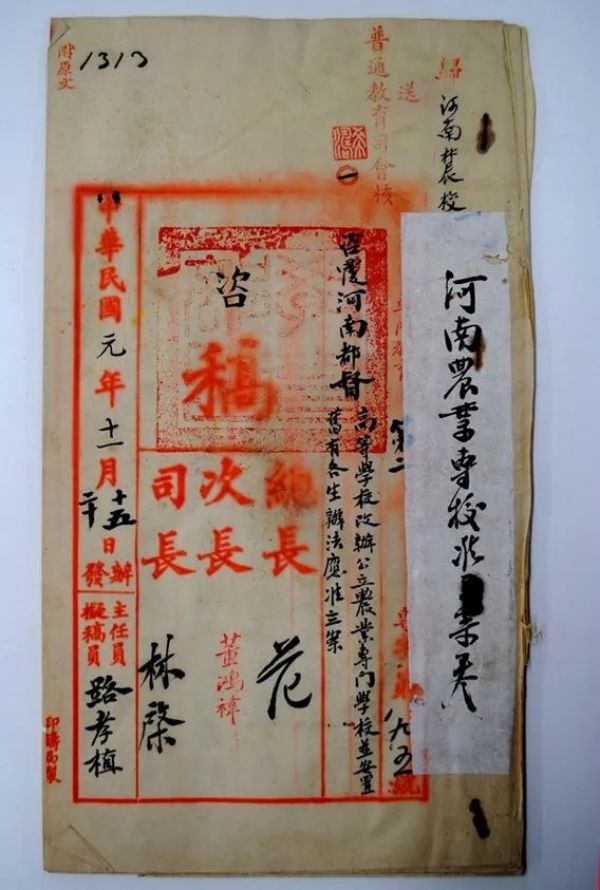 歸 河南農校
送
普通教育司會核
河南農業專校
第二
咨覆河南都督
高等學校改辦公立農業專門學校並安置
舊有各生辦法應准立案
九五
號
咨
稿
總長
次長
司長
范
董鴻禕
林棨
中華民國元年十一月
十五日辦
二十 發
主任員
擬稿員
路孝植
附原文
1313